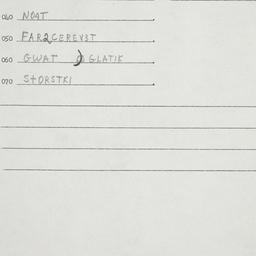 040 NOAT
050 FAR2CEREVST
060 GWAT GLATIK
070 STORSTKI